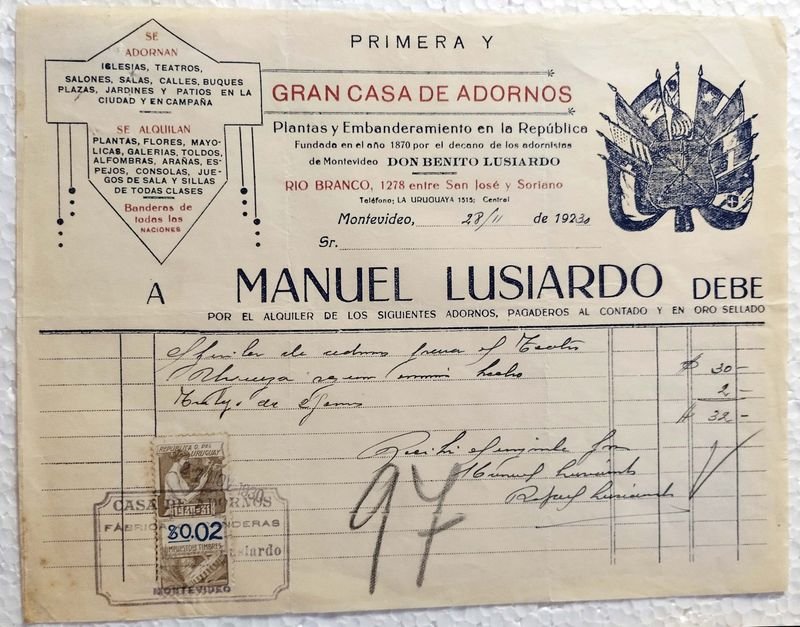 SE
ADORNAN
IGLESIAS, TEATROS,
SALONES, SALAS, CALLES, BUQUES
PLAZAS, JARDINES Y PATIOS EN LA
CIUDAD Y EN CAMPAÑA
SE ALQUILAN
PLANTAS, FLORES, MAYO-
LICAS, GALERIAS, TOLDOS,
ALFOMBRAS, ARAÑAS, ES-
PEJOS, CONSOLAS, JUE-
GOS DE SALA Y SILLAS
DE TODAS CLASES
Banderas de
todas las
NACIONES
PRIMERA Y
GRAN CASA DE ADORNOS
Plantas y Embanderamiento en la República
Fundada en el año 1870 por el decano de los adornistas
de Montevideo DON BENITO LUSIARDO
RIO BRANCO, 1278 entre San José y Soriano
Teléfono: LA URUGUAYA 1515; Central
Montevideo, 28/11 de 1930
Sr.
A MANUEL LUSIARDO DEBE
POR EL ALQUILER DE LOS SIGUIENTES ADORNOS, PAGADEROS AL CONTADO Y EN ORO SELLADO
de el Teatro
$ 30-
2-
$ 32-
Recibí
Manuel Lusiardo
Rafael Lusiardo
97
REPUBLICA O. DEL
URUGUAY
NOV 1930
1930-31
$0.02
IMPUESTOS TIMBRES
CASA DE ADORNOS
FÁBRICA BANDERAS
Lusiardo
MONTEVIDEO